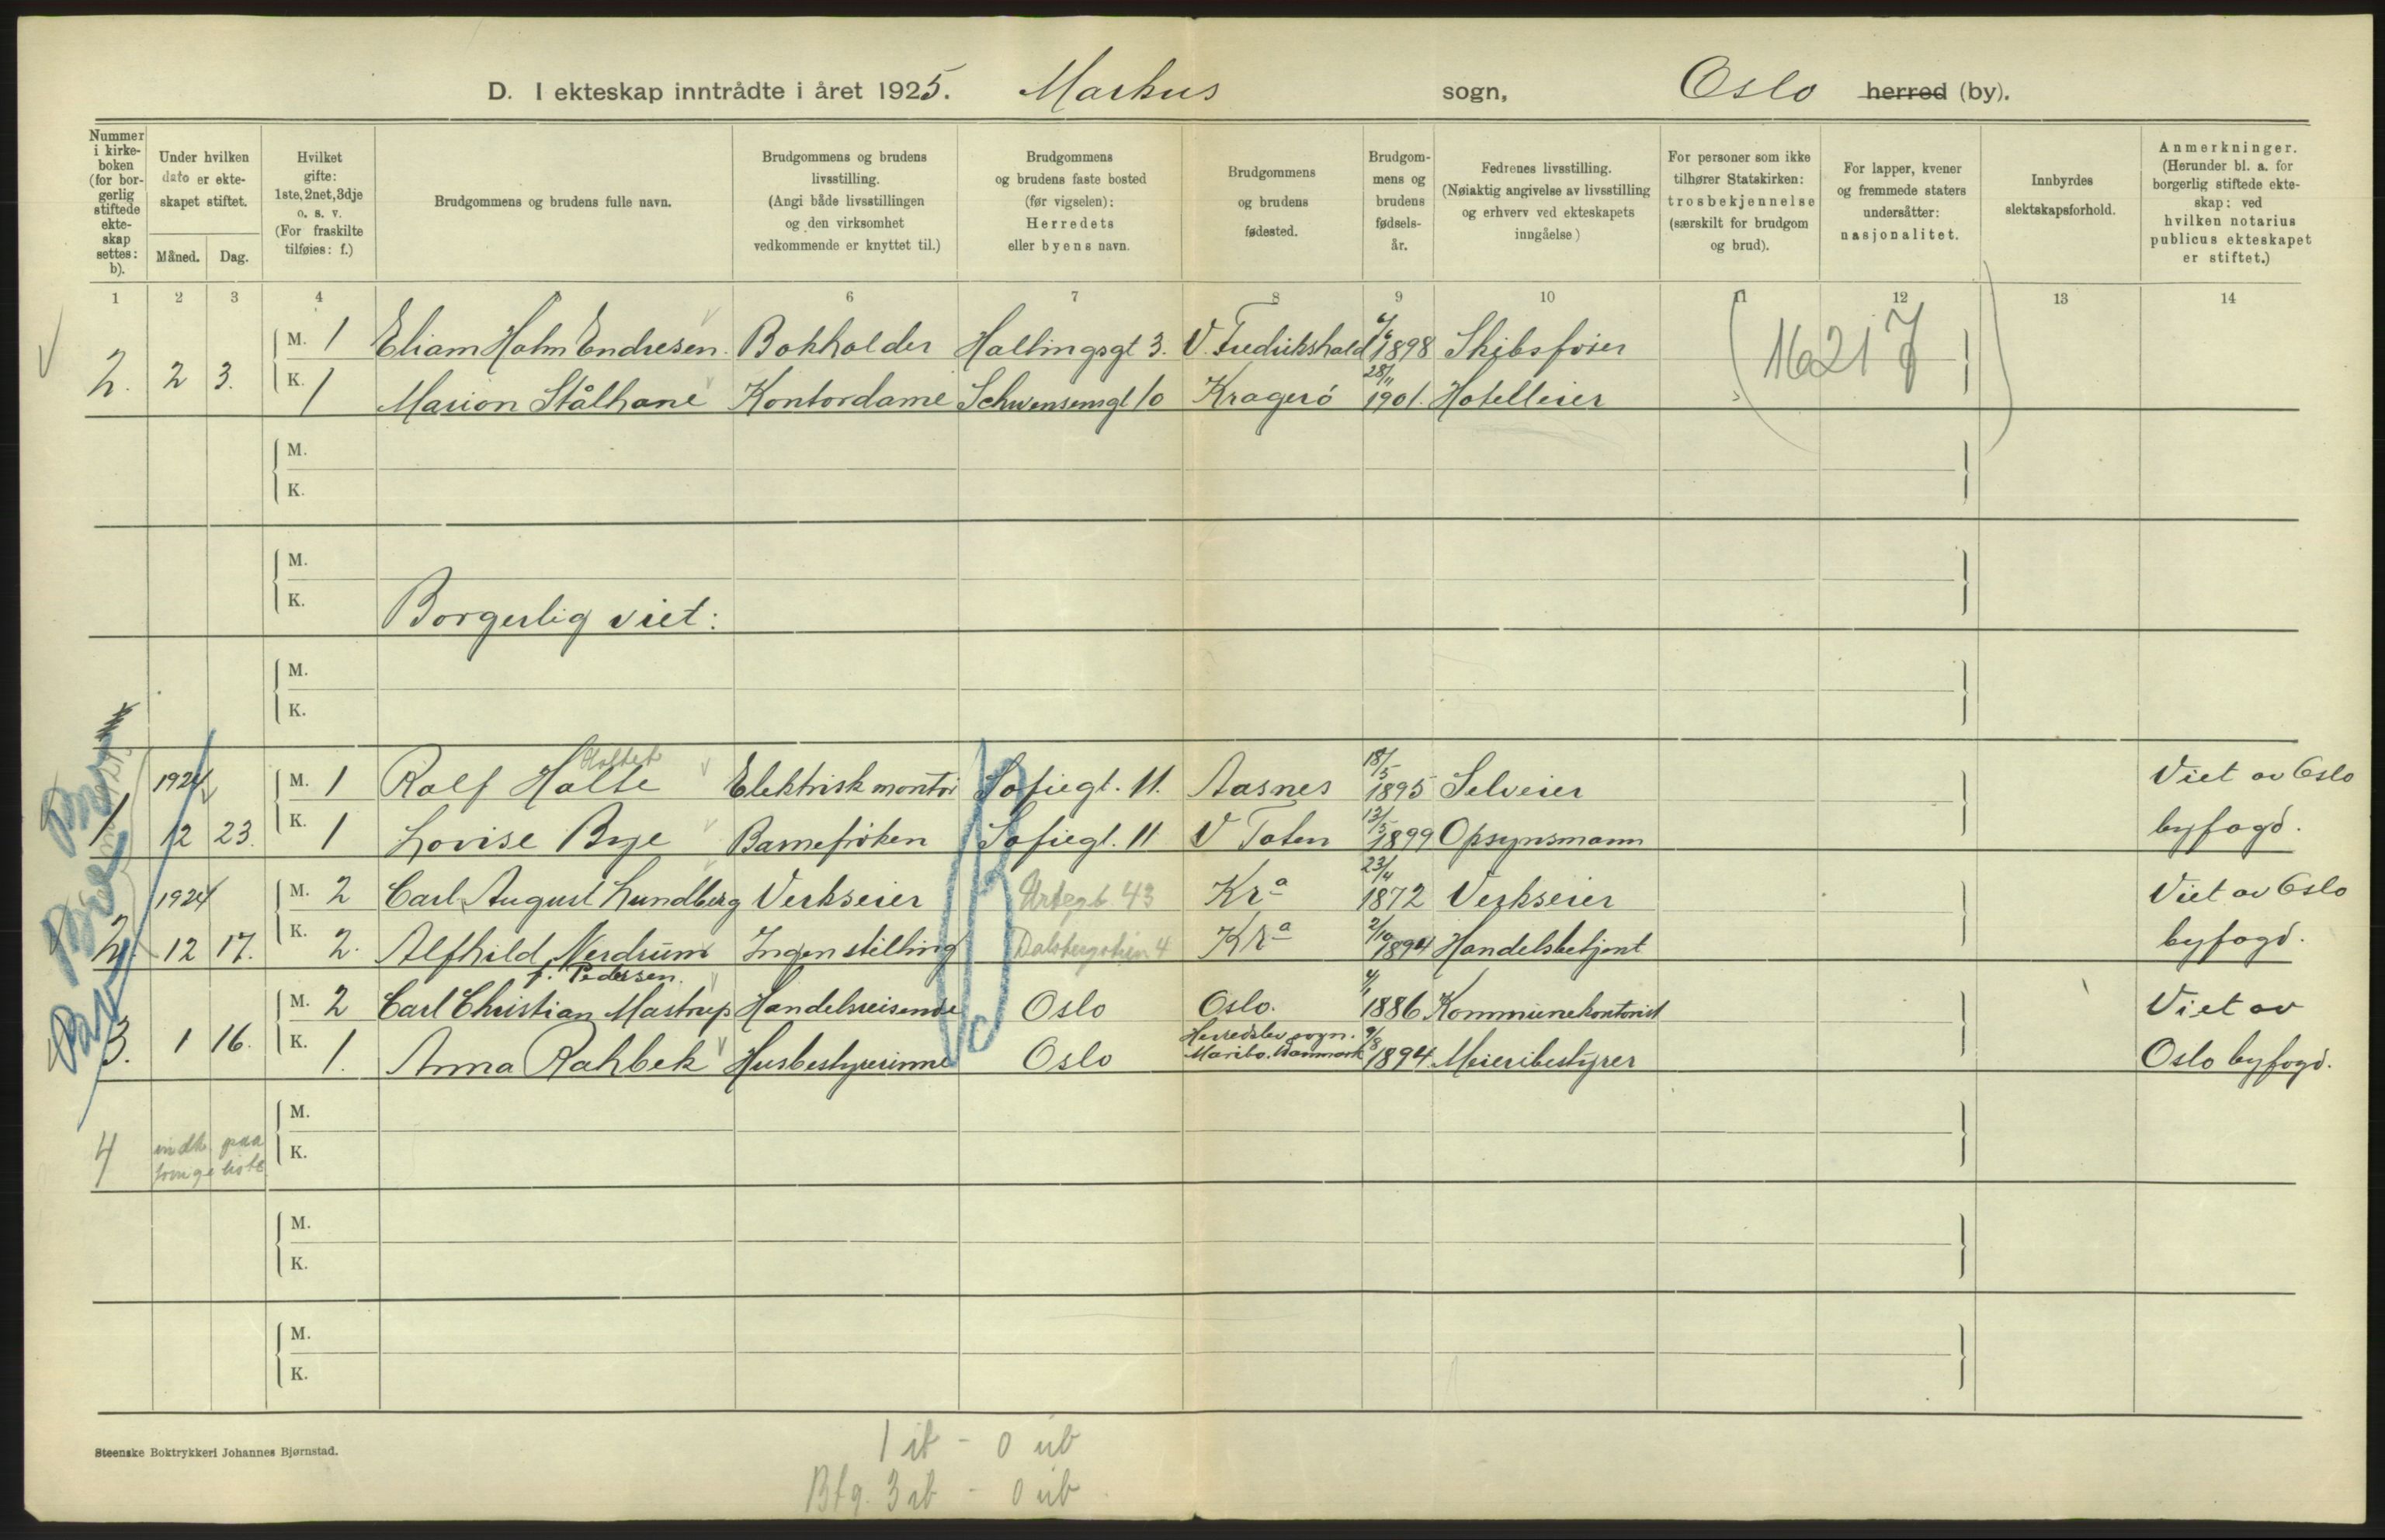 D. I ekteskap inntrådte i året 1925. Markus sogn, Oslo herred (by).
Nummer i kirke-boken (for bor-gerlig stiftede ekte-skap settes: b).
Under hvilken dato er ekte-skapet stiftet.
Måned. Dag.
Hvilket gifte: 1ste, 2net, 3dje o. s. v. (For fraskilte tilføies: f.)
Brudgommens og brudens fulle navn.
Brudgommens og brudens livsstilling. (Angi både livsstillingen og den virksomhet vedkommende er knyttet til.)
Brudgommens og brudens faste bosted (før vigselen): Herredets eller byens navn.
Brudgommens og brudens fødested.
Brudgom-mens og brudens fødsels-år.
Fedrenes livsstilling. (Nøiaktig angivelse av livsstilling og erhverv ved ekteskapets inngåelse)
For personer som ikke tilhører Statskirken: trosbekjennelse (særskilt for brudgom og brud).
For lapper, kvener og fremmede staters undersåtter: nasjonalitet.
Innbyrdes slektskapsforhold.
Anmerkninger. (Herunder bl. a. for borgerlig stiftede ekte-skap: ved hvilken notarius publicus ekteskapet er stiftet.)
1 2 3 4 6 7 8 9 10 11 12 13 14
M. 1 Eliam Holm Endresen. Bokholder Hallingsgt 3. V. Fredrikshald 6/6 1898 Skibsfører
16217
2. 2 3. K. 1 Marion Stålhane Kontordame Schwensensgt 10 Kragerö 28/11 1901. Hotelleier
M.
K.
M.
K. Borgerlig viet:
M.
K.
Holtet
1924 M. 1 Rolf Holte Elektriskmontör Sofiegt. 11. Aasnes 18/5 1895 Selveier Viet av Oslo
1 12 23. K. 1 Lovise Bye Barnefröken Sofiegt. 11 V Toten 13/5 1899 Opsynsmann byfogd.
1924 M. 2 Carl August Lundberg Verkseier Urtegt 43 Kra 23/4 1872 Verkseier Viet av Oslo
2. 12 17. K. 2. Alfhild Nerdrum Ingen stilling Dalsbergstien 4 Kra 2/10 1894 Handelsbetjent byfogd.
f. Pedersen.
M. 2 Carl Christian Mastrup Handelsreisende Oslo Oslo. 1886 Kommunekontorist Viet av
Herredslev sogn.
3. 1 16. K. 1. Anna Rahbek Husbestyrerinne Oslo Maribo. Danmark 9/8 1894. Meieribestyrer Oslo byfogd.
M.
4 indk. paa
forrige liste K.
M.
K.
M.
K.
Steenske Boktrykkeri Johannes Bjørnstad.
1 ib - 0 ub
Btg. 3 ib - 0 ub